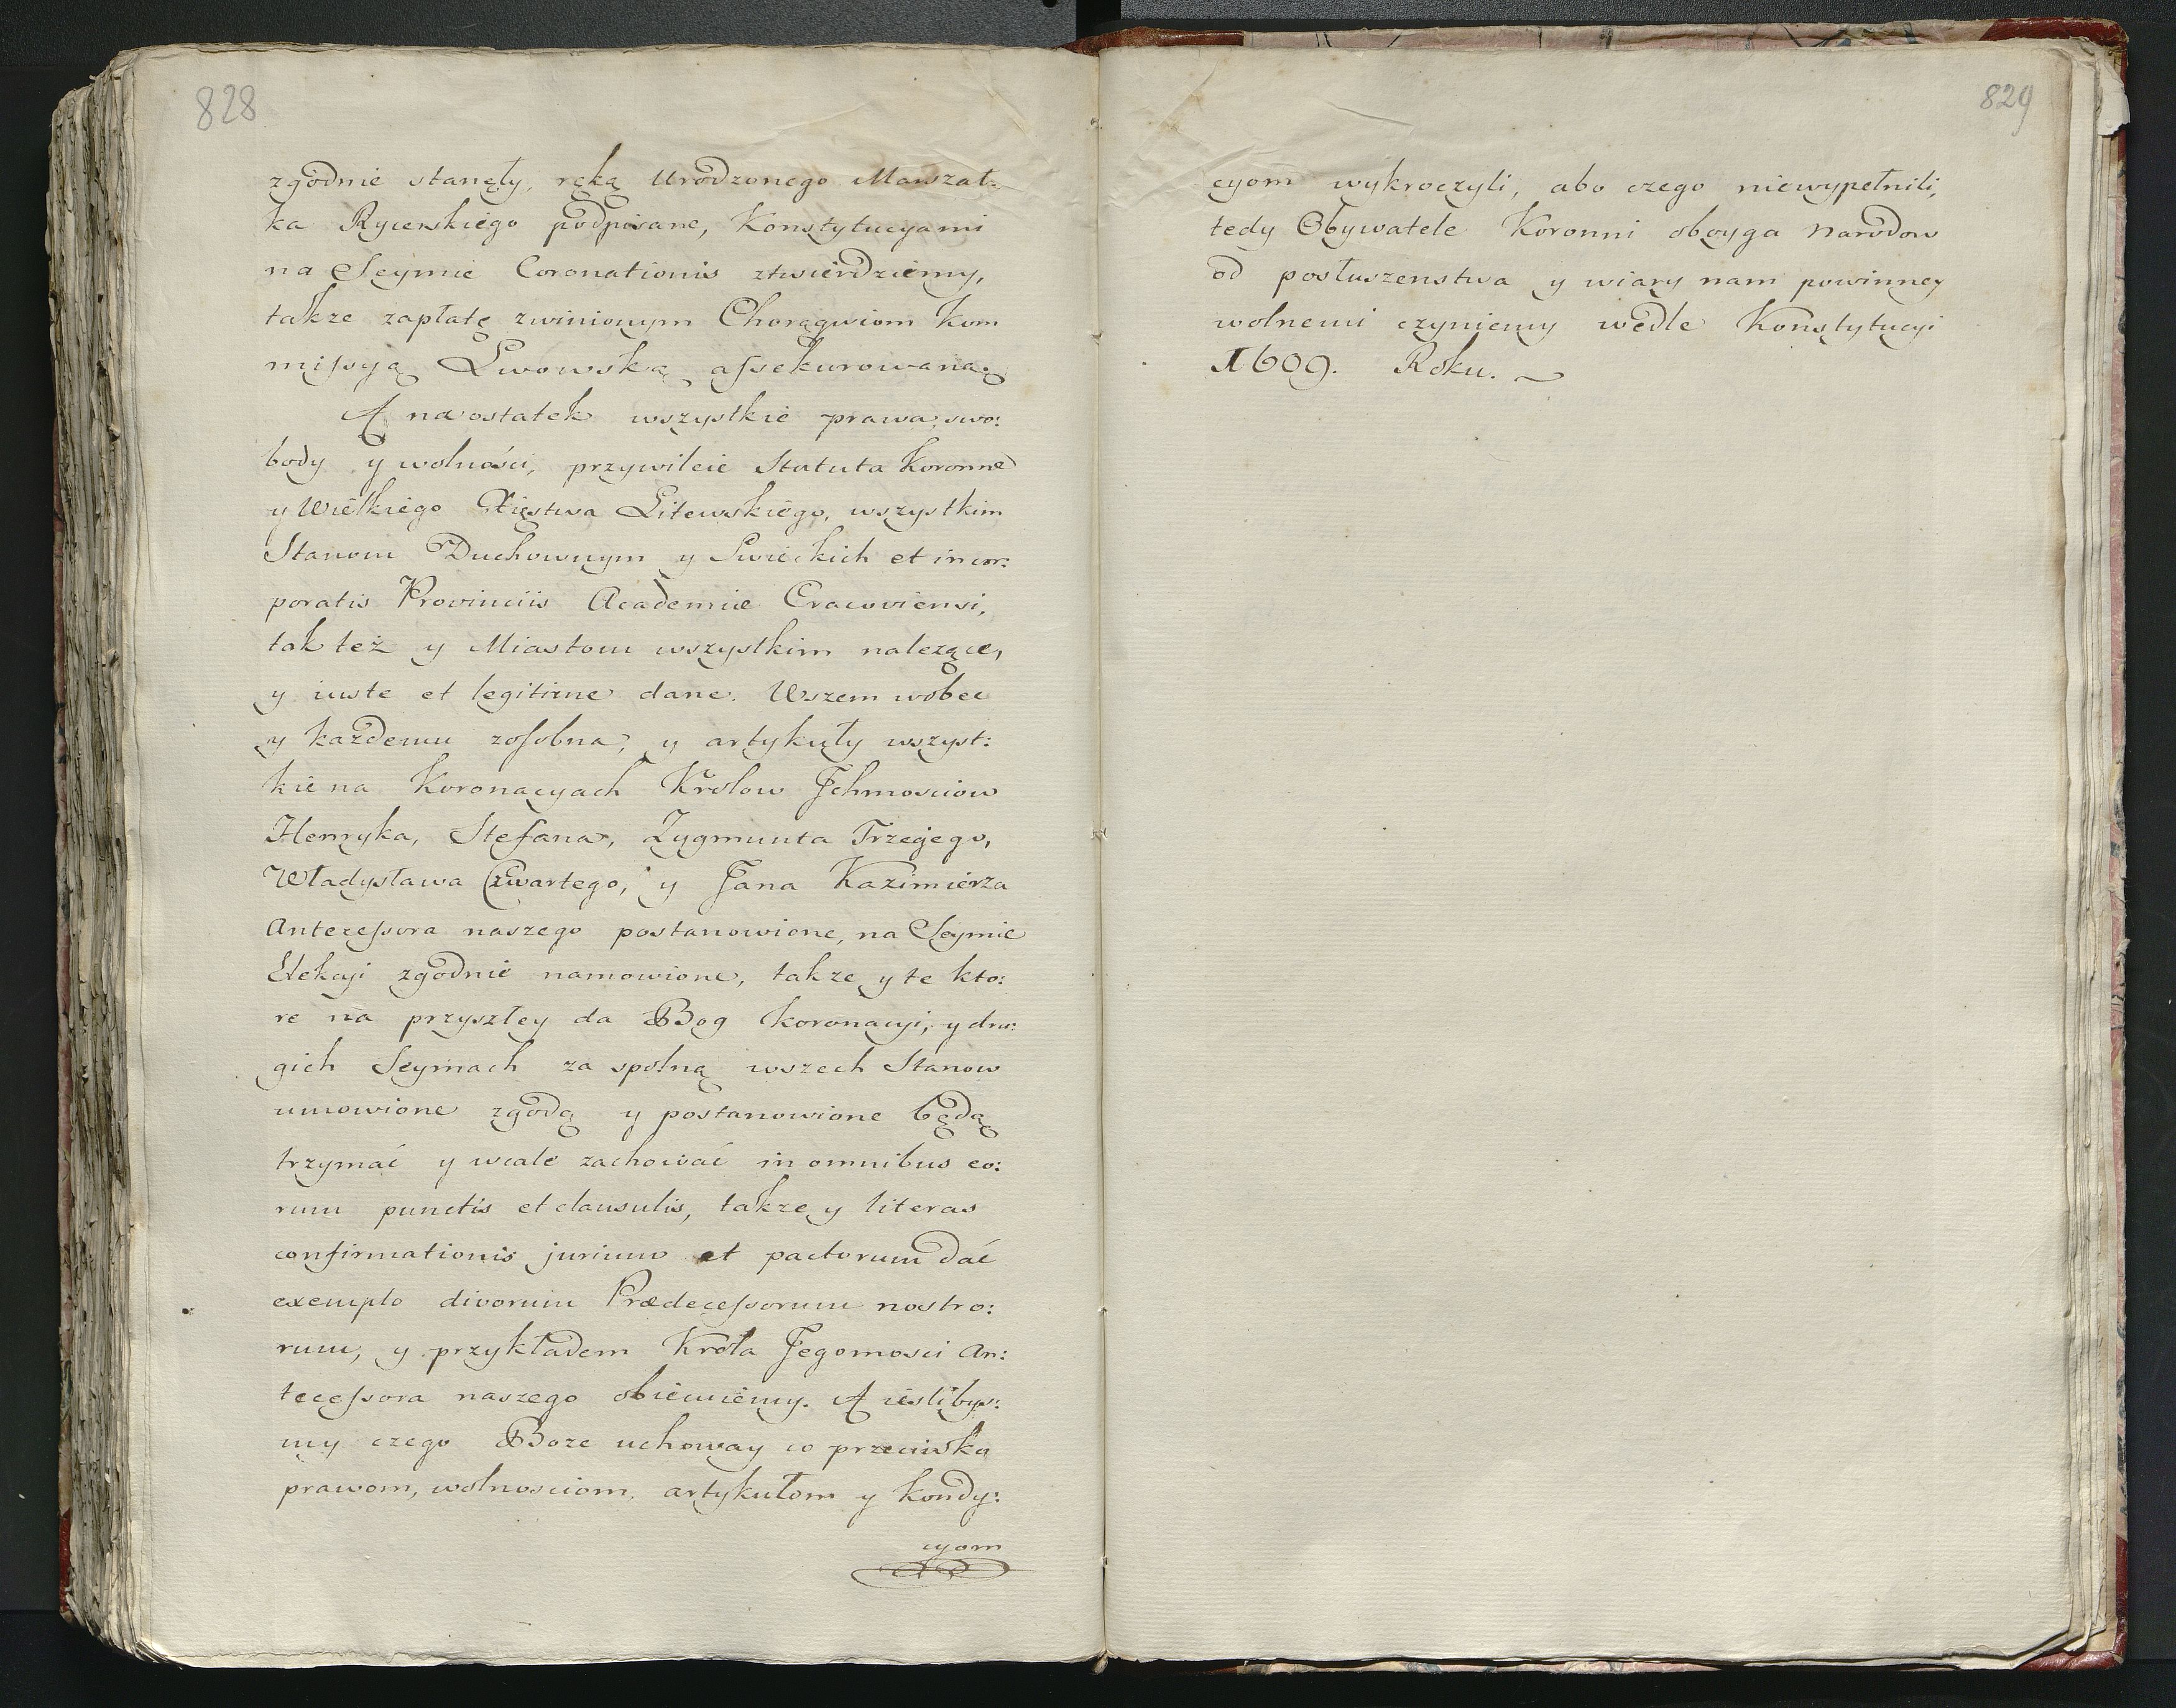 828
zgodnie stanęły, ręką Urodzonego Marszał:
ka Rycerskiego podpisane, Konstytucyami
na Seymie Coronationis ztwierdziemy,
takze zapłatę zwinionym Chorągwiom Kom
mifsyą Lwowską afsekurowaną.
A na ostatek wszystkie prawa, swo:
body y wolności, przywileie Statuta Koronne
y Wielkiego Xięstwa Litewskiego, wszystkim
Stanom Duchownym y Swieckich et incor:
poratis Provinciis Academiæ Cracoviensi,
tak też y Miastom wszystkim należące,
y iuste et legitime dane. Wszem wobec
y każdemu zosobna, y artykuły wszyst:
kie na Koronacyach Krolow Jchmosciow
Henryka, Stefana, Zygmunta Trzecjego,
Władysława Czwartego, y Jana Kazimierza
Antecefsora naszego postanowione, na Seymie
Elekcyi zgodnie namowione, takze y te kto:
re na przyszłey da Bog koronacyi, y dru:
gich Seymach za spolną wszech Stanow
umowione zgodą y postanowione będą
trzymać y wcale zachować in omnibus eo:
rum punctis et clausulis, takze y literas
confirmationis jurium et pactorum dać
exemplo divorum Prædecefsorum nostro:
rum, y przykładem Krola Jegomosci An:
tecefsora naszego obiecuiemy. A iesliby:
my czego Boze uchoway co przeciwko
prawom, wolnosciom, artykułom y kondy:
cyom
829
cyom wykroczyli, abo czego niewypełnili,
tedy Obywatele Koronni oboyga Narodow
od posłuszenstwa y wiary nam powinney
wolnemi czyniemy wedle Konstytucyi
1609. Roku.